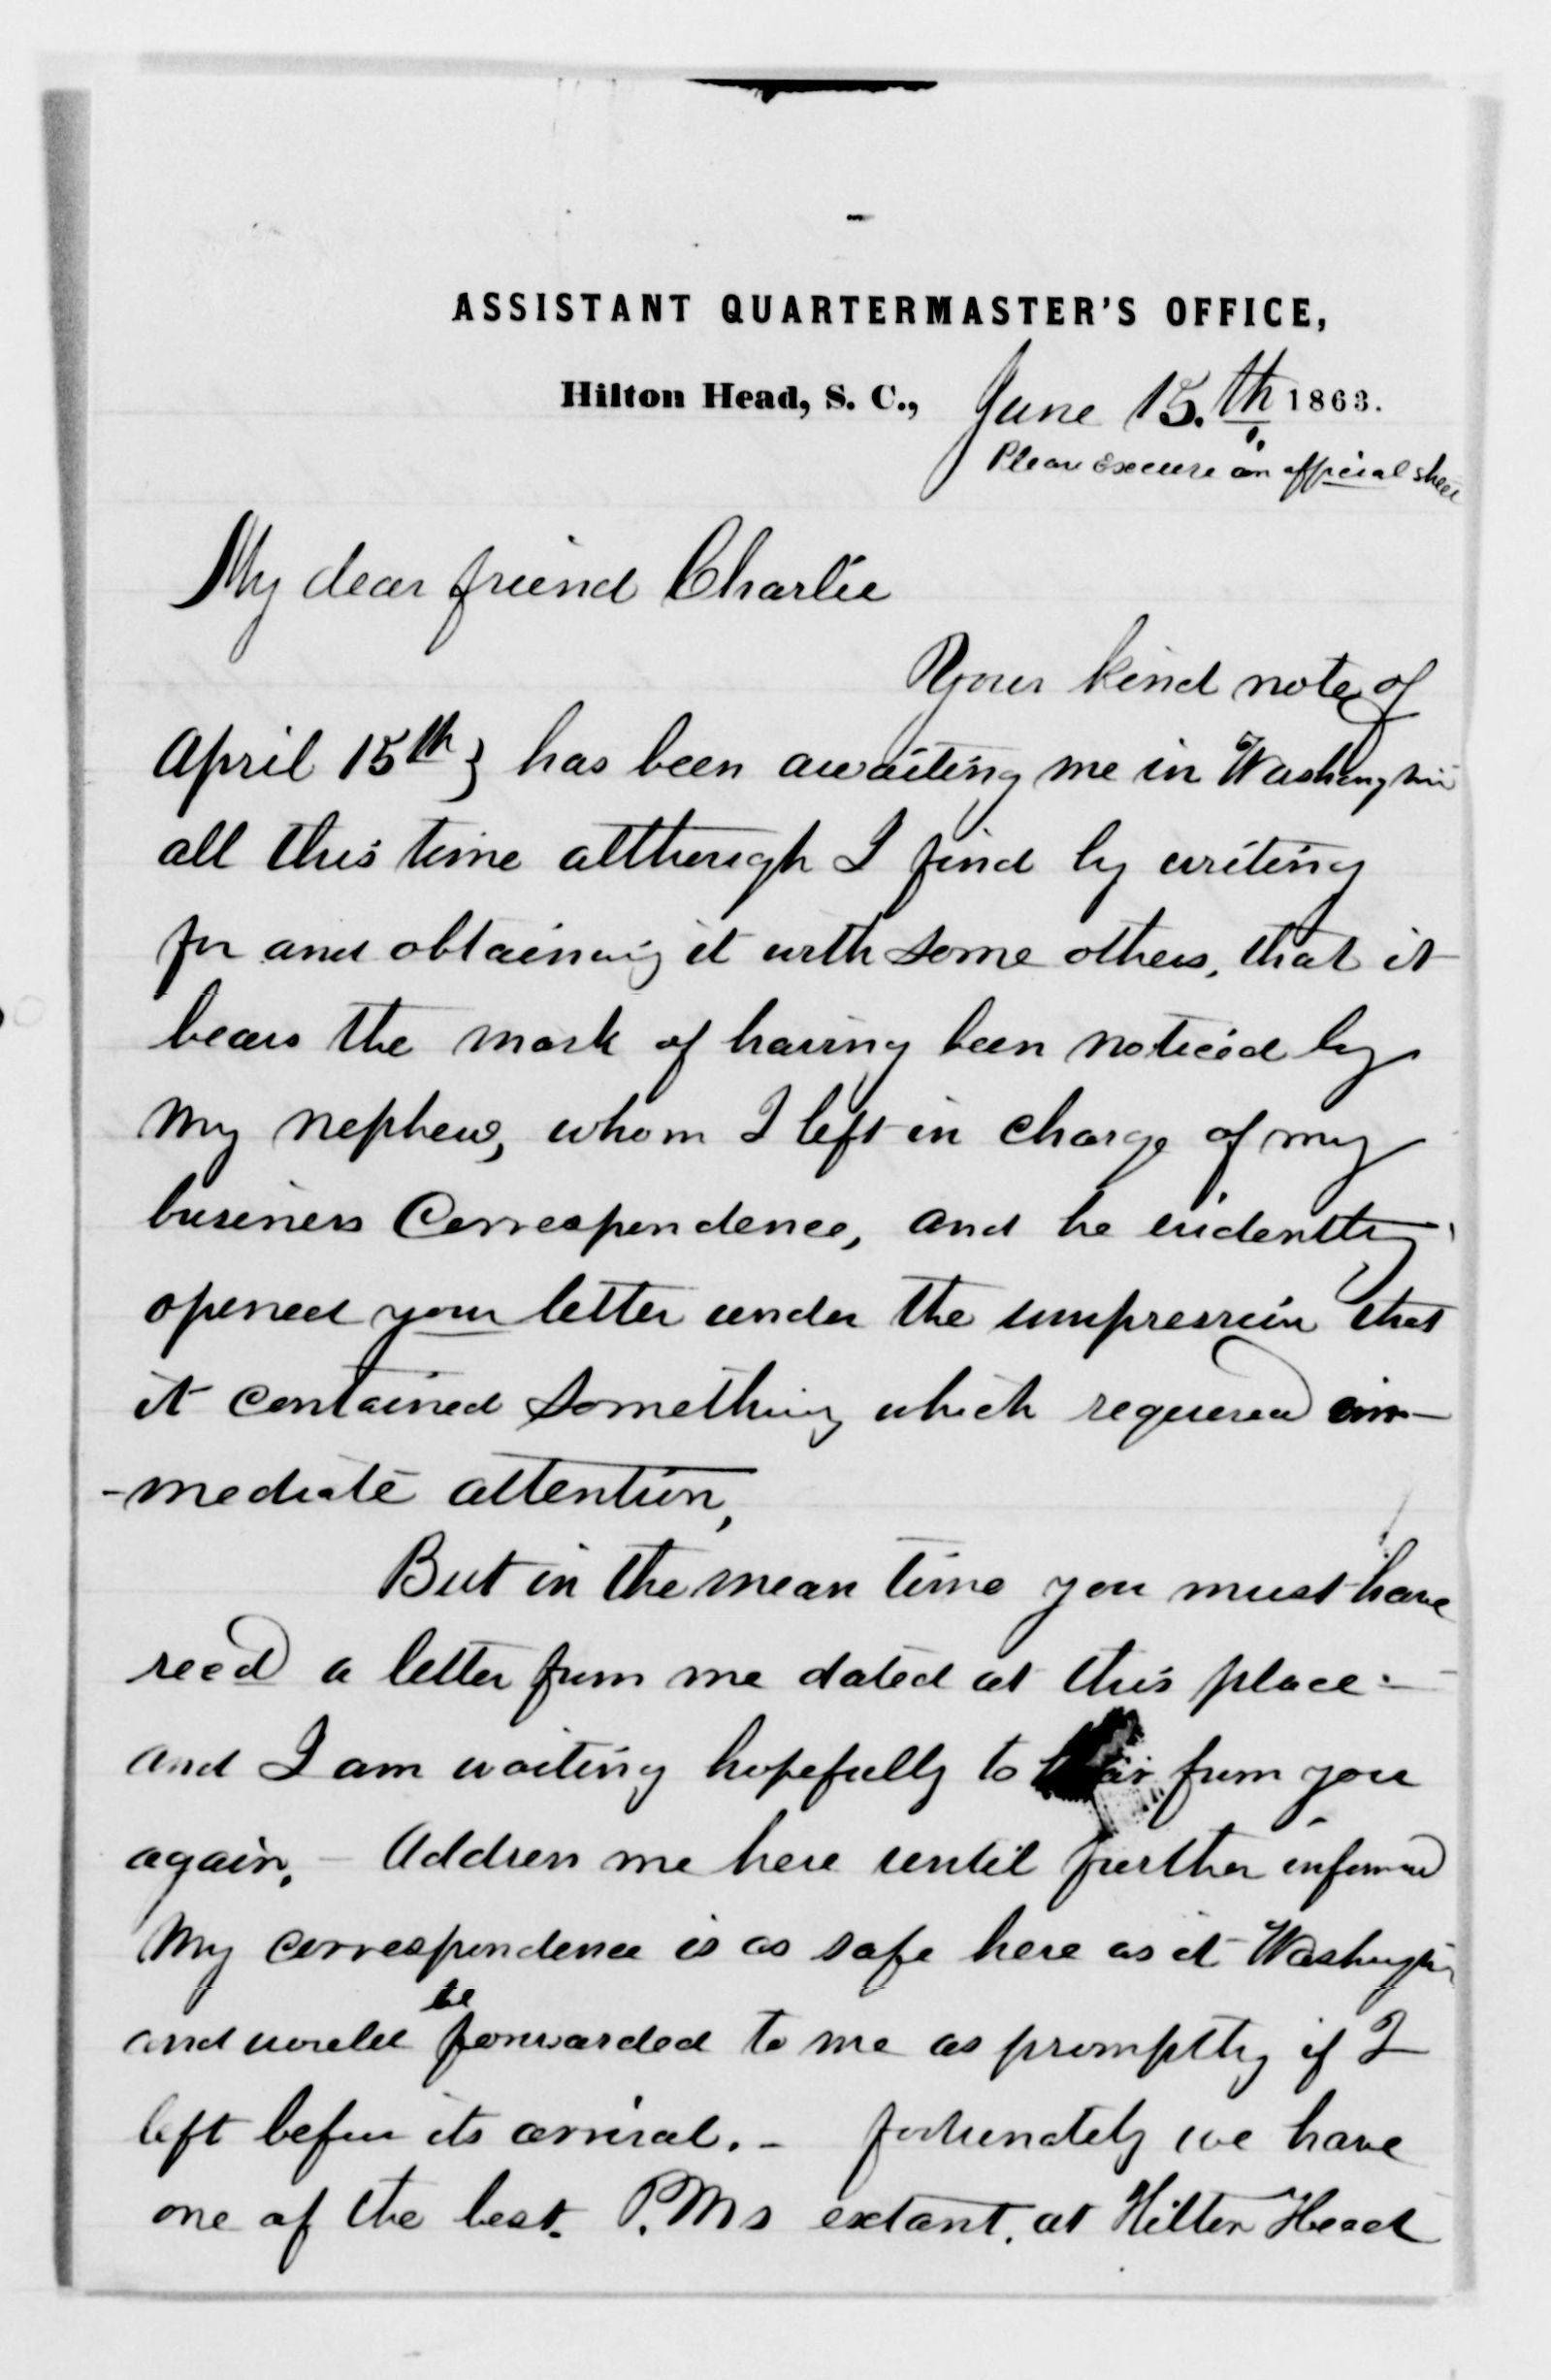 ASSISTANT QUARTERMASTER'S OFFICE,
Hilton Head, S. C., June 15.th 1863.
Please excuse an official sheet
My dear friend Charlie
Your kind note of
April 15th, has been awaiting me in Washington
all this time although I find by writing
for and obtaining it with some others, that it
bears the mark of having been noticed by
my nephew, whom I left in charge of my
business Correspondence, and he evidently
opened your letter under the impression that
it contained something which required im-
-mediate attention,
But in the mean time you must have
recd a letter from me dated at this place:—
and I am waiting hopefully to hear from you
again. – Address me here until further informed
My correspondence is as safe here as at Washington
and would be forwarded to me as promptly if I
left before its arrival. – fortunately we have
one of the best. P.Ms extant. at Hilton Head